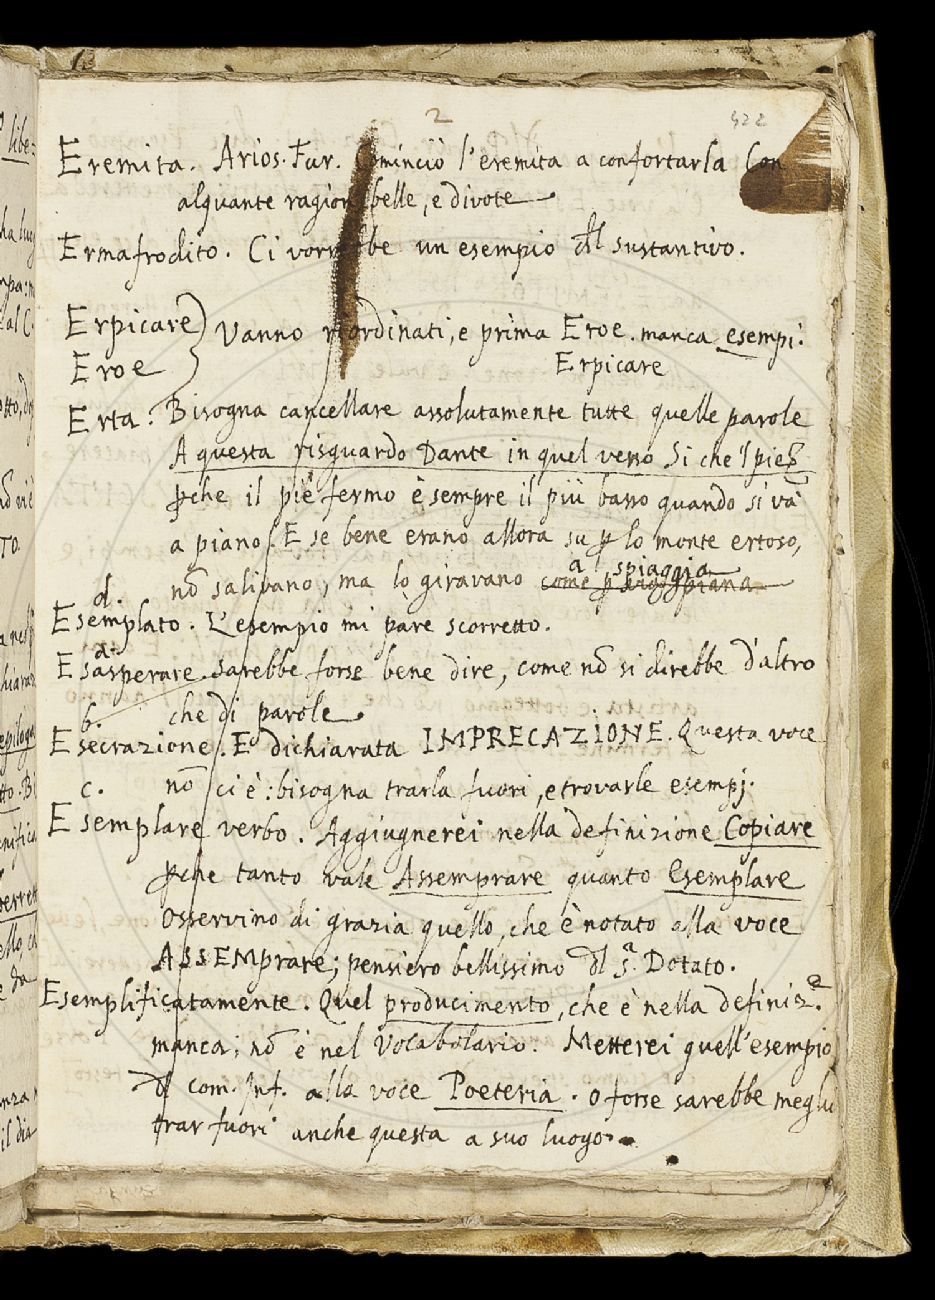 2
422
Eremita. Arios. Fur. Cominciò l'eremita a confortarla Con
alquante ragion belle, e divote
Ermafrodito. Ci vorrebbe un esempio del sustantivo.
Erpicare } Vanno riordinati, e prima Eroe. manca esempi.
Eroe Erpicare
Erta. Bisogna cancellare assolutamente tutte quelle parole
A questa risguardo Dante in quel verso Si che 'l piè
pche il piè fermo è sempre il più basso quando si và
a piano. E se bene erano allora su p lo monte ertoso,
a spiaggia
nō salivano, ma lo giravano come p piaggia piana
d.
Esemplato. L'esempio mi pare scorretto.
a.
Esasperare. Sarebbe forse bene dire, come nō si direbbe d'altro
che di parole.
b.
Esecrazione. E' dichiarata IMPRECAZIONE. Questa voce
nō ci è: bisogna trarla fuori, e trovarle esempj.
c.
Esemplare verbo. Aggiugnerei nella definizione Copiare
pche tanto vale Assemprare quanto Esemplare
Osservino di grazia quello, che è notato alla voce
ASSEMprare; pensiero bellissimo del S.r Dotato.
Esemplificatamente. Quel producimento, che è nella definiz.e
manca; nō è nel Vocabolario. Metterei quell'esempio
del com. Inf. alla voce Poeteria. o forse sarebbe meglio
trar fuori anche questa a suo luogo.